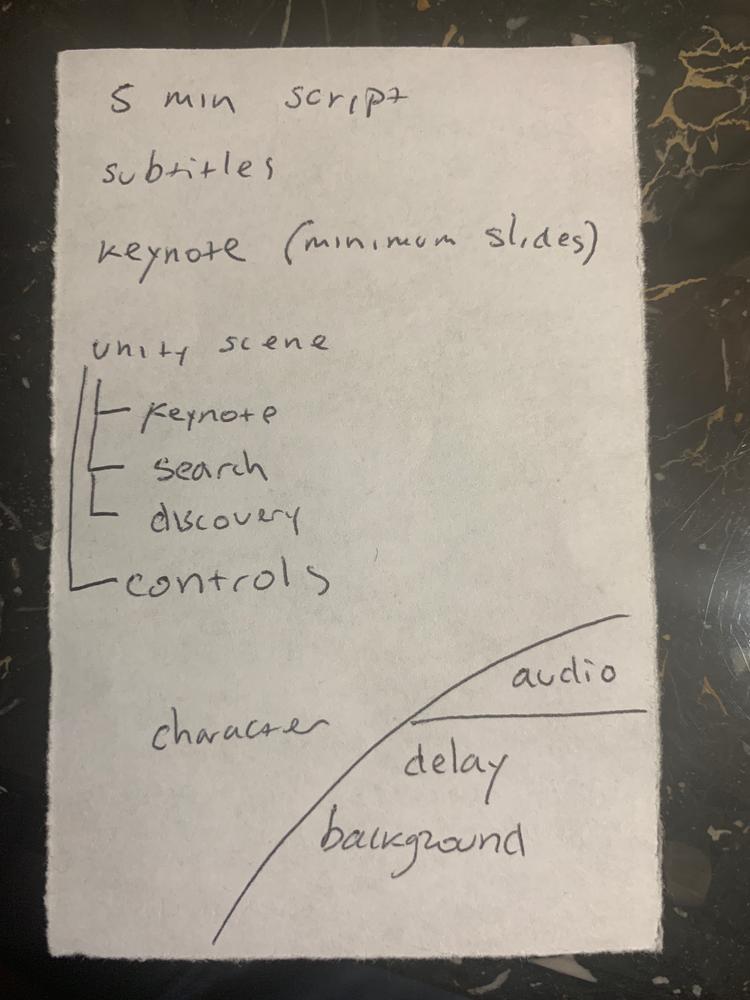 5 min script
subtitles
keynote (minimum slides)
unity scene
keynote
search
discovery
controls
audio
character
delay
background